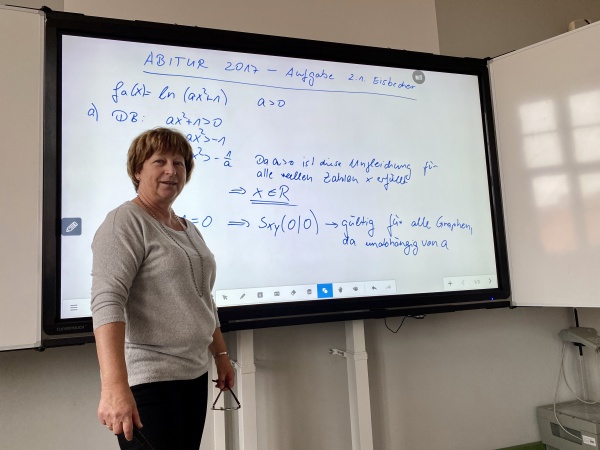 ABITUR 2017 – Aufgabe 2.1. Eisbecher
fa(x)= ln (ax²+1) a>0
a) DB: ax²+1>0
ax²>-1
x²>-1/a Da a>0 ist diese Ungleichung für
alle reellen Zahlen x erfüllt
⇒ x ∈ R
=0 ⇒ Sxy(0|0) → gültig für alle Graphen,
da unabhängig von a